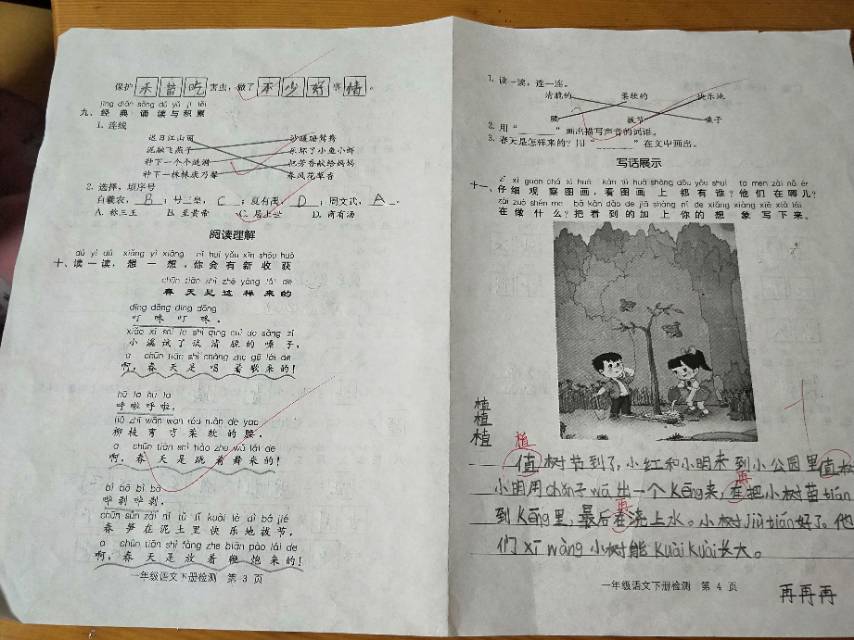 保护 禾苗吃 害虫，做了 不少好 事情。
jīng diǎn sòng dú yǔ jī lěi
九、经典诵读与积累
1. 连线
迟日江山丽 沙暖睡鸳鸯
泥融飞燕子 乐坏了小鱼小虾
种下一个小 把芳香献给妈妈
种下一株株 春风花草香
2. 选择，填序号
白羲农， B ；号三皇， C ；夏有禹， D ；周文武， A 。
A. 称三王 B. 至黄帝 C. 居上世 D. 商有汤
阅读理解
dú yì dú xiǎng yì xiǎng nǐ huì yǒu xīn shōu huò
十、读一读，想一想，你会有新收获
chūn tiān shì zhè yàng lái de
春天是这样来的
dīng dōng dīng dōng
叮咚叮咚，
xiǎo xī shì le shì qīng cuì de sǎng zi
小溪试了试清脆的嗓子，
a chūn tiān shì chàng zhe gē lái de
啊，春天是唱着歌来的！
hū lā hū lā
呼啦呼啦，
liǔ zhī wān wān róu ruǎn de yāo
柳枝弯弯柔软的腰，
a chūn tiān shì tiào zhe wǔ lái de
啊，春天是跳着舞来的！
bì bō bì bō
哔剥哔剥，
chūn sǔn zài ní tǔ lǐ kuài lè de bá jié
春笋在泥土里快乐地拔节，
a chūn tiān shì fàng zhe biān pào lái de
啊，春天是放着鞭炮来的！
一年级语文下册检测 第 3 页
1. 读一读，连一连。
清脆的 柔软的 快乐地
腰 拔节 嗓子
2. 用“ ”画出描写声音的词语。
3. 春天是怎样来的？用“ ”在文中画出。
写话展示
zǐ xì guān chá tú huà kàn tú huà shàng dōu yǒu shuí tā men zài nǎ ér
十一、仔细观察图画，看图画上都有谁？他们在哪儿？
zài zuò shén me bǎ kàn dào de jiā shàng nǐ de xiǎng xiàng xiě xià lái
在做什么？把看到的加上你的想象写下来。
植
植
植
植
值树节到了，小红和小明来到小公园里值树
再
小明用chǎn子wā出一个kēng来，在把小树苗tián
再
到kēng里，最后在浇上水。小树jiù tián好了。他
们xī wàng小树能kuài kuài长大。
一年级语文下册检测 第 4 页
再再再